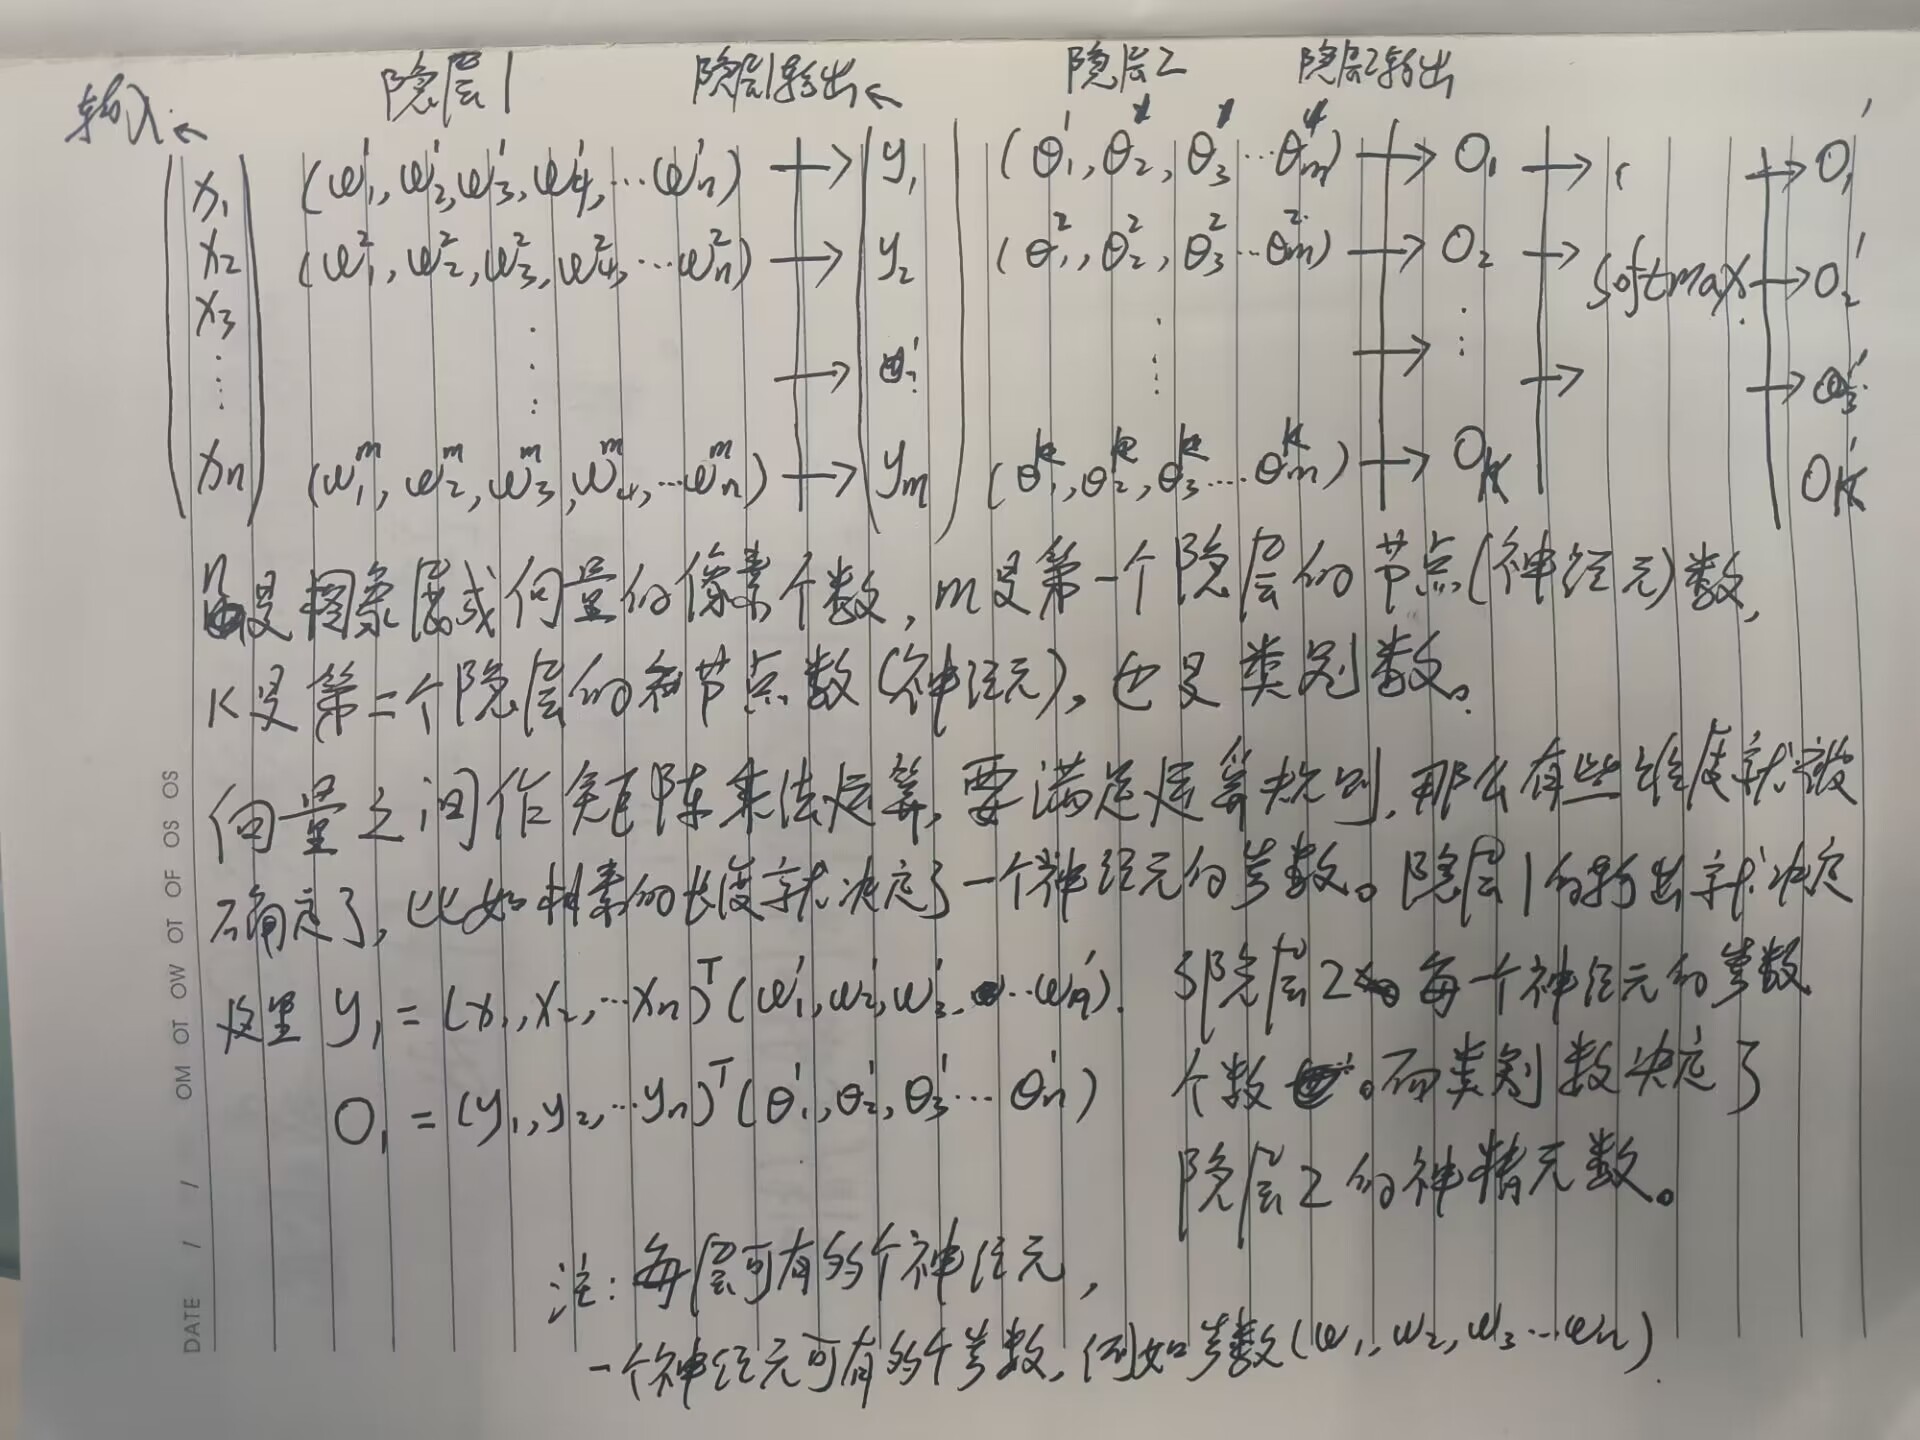 输入 隐层1 隐层1输出 隐层2 隐层2输出
x₁ (ω₁¹, ω₂¹, ω₃¹, ω₄¹, …ωₙ¹) → y₁ (θ₁¹, θ₂¹, θ₃¹…θₘ¹) → O₁ → → O₁′
x₂ (ω₁², ω₂², ω₃², ω₄², …ωₙ²) → y₂ (θ₁², θ₂², θ₃²…θₘ²) → O₂ → softmax → O₂′
x₃
⋮ ⋮ → ⋮ ⋮ → ⋮ → → O₃′
xₙ (ω₁ᵐ, ω₂ᵐ, ω₃ᵐ, ω₄ᵐ, …ωₙᵐ) → yₘ (θ₁ᴷ, θ₂ᴷ, θ₃ᴷ…θₘᴷ) → Oᴋ Oᴋ′
n是图象展成向量的像素个数, m是第一个隐层的节点(神经元)数,
K是第二个隐层的节点数(神经元), 也是类别数。
向量之间作矩阵乘法运算, 要满足运算规则, 那么有些维度就被
确定了, 比如像素的长度就决定了一个神经元的参数。隐层1的输出就决定
这里 y₁ = (x₁, x₂, …xₙ)ᵀ(ω₁¹, ω₂¹, ω₃¹, …ωₙ¹). 了隐层2每一个神经元的参数
O₁ = (y₁, y₂, …yₙ)ᵀ(θ₁¹, θ₂¹, θ₃¹…θₙ¹) 个数。而类别数决定了
隐层2的神精元数。
注: 每层可有多个神经元,
一个神经元可有多个参数, 例如参数(ω₁, ω₂, ω₃…ωₙ)
DATE / / OM OT OW OT OF OS OS